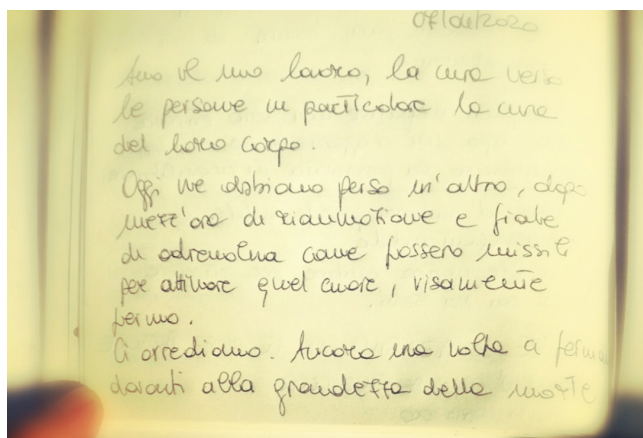 07/04/2020
Amo il mio lavoro, la cura verso
le persone in particolare la cura
del loro corpo.
Oggi ne abbiamo perso un'altro, dopo
mezz'ora di rianimazione e fiale
di adrenalina come fossero missili
per attivare quel cuore, visamente
fermo.
Ci arrediamo. Ancora una volta a
davanti alla grandezza della morte